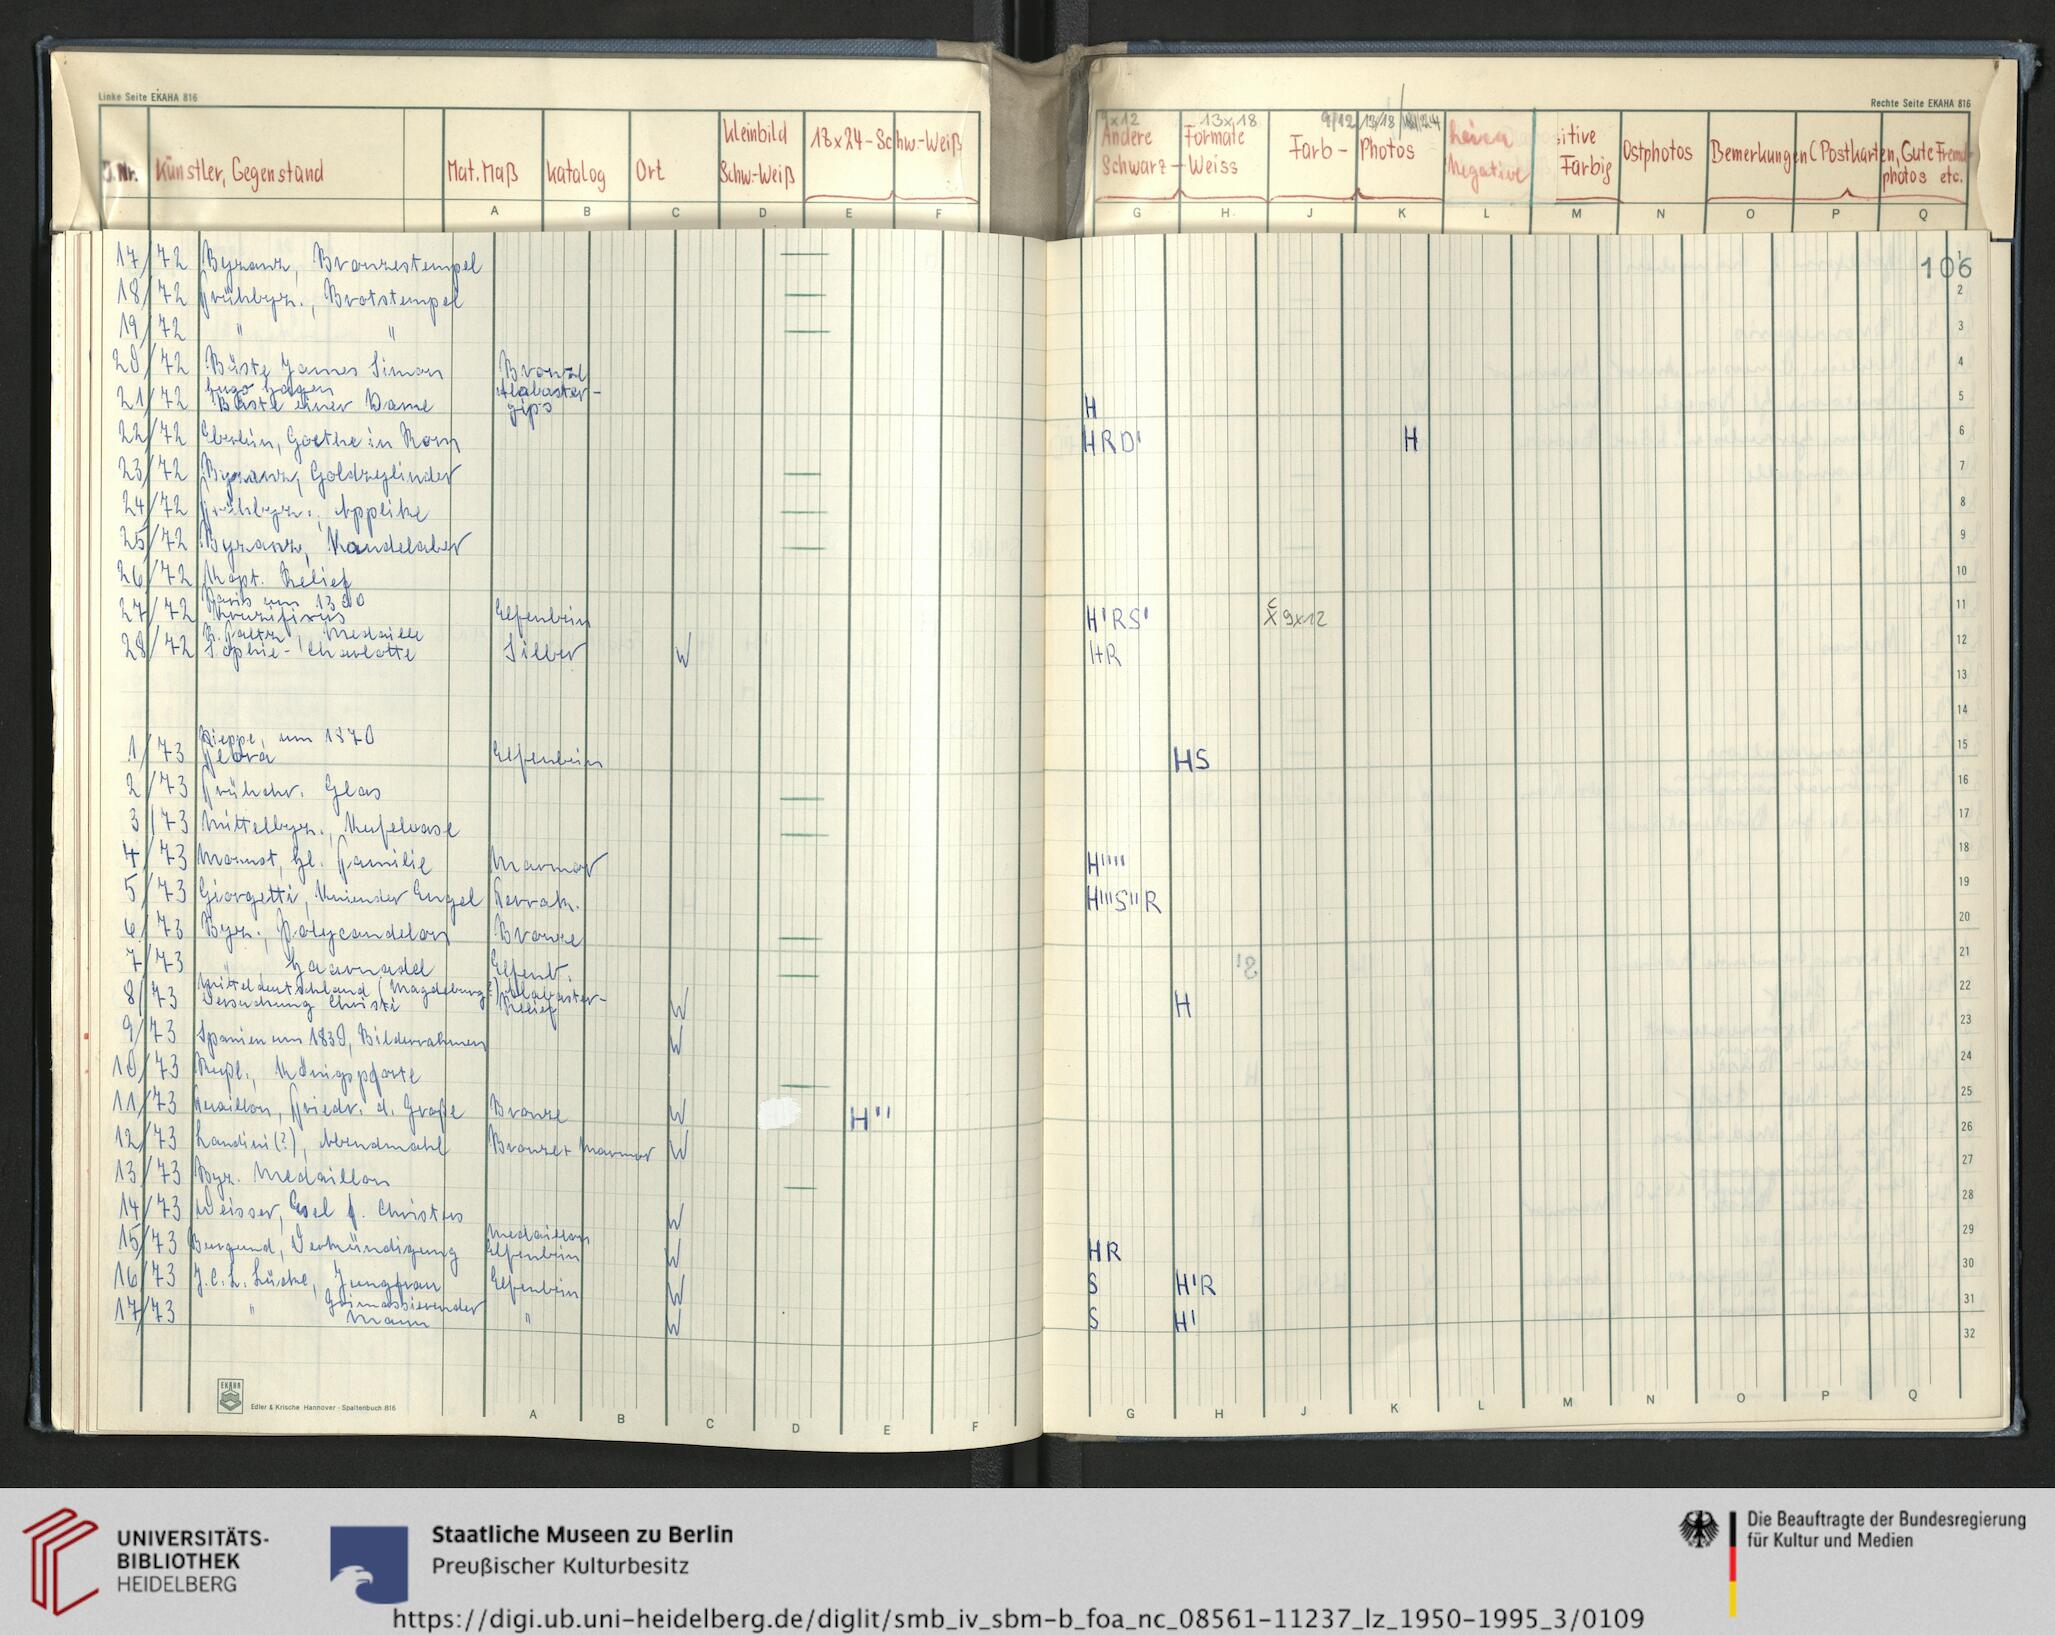 Linke Seite EKAHA 816
Rechte Seite EKAHA 816
J.Nr. Künstler, Gegenstand Mat. Maß Katalog Ort Kleinbild Schw.-Weiß 18x24-Schw.-Weiß
A B C D E F
9x12 13x18 9/12 13/18 18/24
Andere Formate Schwarz-Weiss Farb-Photos keine Negative sitive Farbig Ostphotos Bemerkungen (Postkarten, Gute Fremdphotos etc.
G H J K L M N O P Q
106
17/72 Byzanz, Bronzestempel — 1
18/72 Frühbyz., Brotstempel — 2
19/72 " " — 3
20/72 Büste James Simon Bronze 4
21/72 Hugo Hagen Büste einer Dame Alabastergips H 5
22/72 Eberlein, Goethe in Rom HRD' H 6
23/72 Byzanz, Goldzylinder — 7
24/72 Frühbyz., Applike — 8
25/72 Byzanz, Kandelaber — 9
26/72 Kopt. Relief 10
27/72 Paris um 1300 Kruzifixus Elfenbein H'RS' 9x12 11
28/72 R. Faltz, Medaille Sophie-Charlotte Silber W HR 12
13
14
1/73 Dieppe, um 1870 Flora Elfenbein HS 15
2/73 Frühchr. Glas — 16
3/73 Mittelbyz., Kufelvase — 17
4/73 Monnot, hl. Familie Marmor H'''' 18
5/73 Giorgetti, Kniender Engel Terrak. H'''S''R 19
6/73 Byz., Polycandelon Bronze — 20
7/73 " Haarnadel Elfenb. — 21
8/73 Mitteldeutschland (Magdeburg?) Versuchung Christi Alabaster-Relief W H 22
9/73 Spanien um 1830, Bilderrahmen W 23
10/73 Rußl., Königspforte — 24
11/73 Vuaillon, Friedr. d. Große Bronze W H'' 25
12/73 Landini (?), Abendmahl Bronze + Marmor W 26
13/73 Byz. Medaillon — 27
14/73 Weisser, Esel f. Christus W 28
15/73 Burgund, Verkündigung Medaillon Elfenbein W HR 29
16/73 J.C.L. Lücke, Jungfrau Elfenbein W S H'R 30
17/73 " Grimassierender Mann " W S H' 31
32
EKAHA
Edler & Krische Hannover · Spaltenbuch 816
A B C D E F
G H J K L M N O P Q
UNIVERSITÄTS-
BIBLIOTHEK
HEIDELBERG
Staatliche Museen zu Berlin
Preußischer Kulturbesitz
Die Beauftragte der Bundesregierung
für Kultur und Medien
https://digi.ub.uni-heidelberg.de/diglit/smb_iv_sbm-b_foa_nc_08561-11237_lz_1950-1995_3/0109